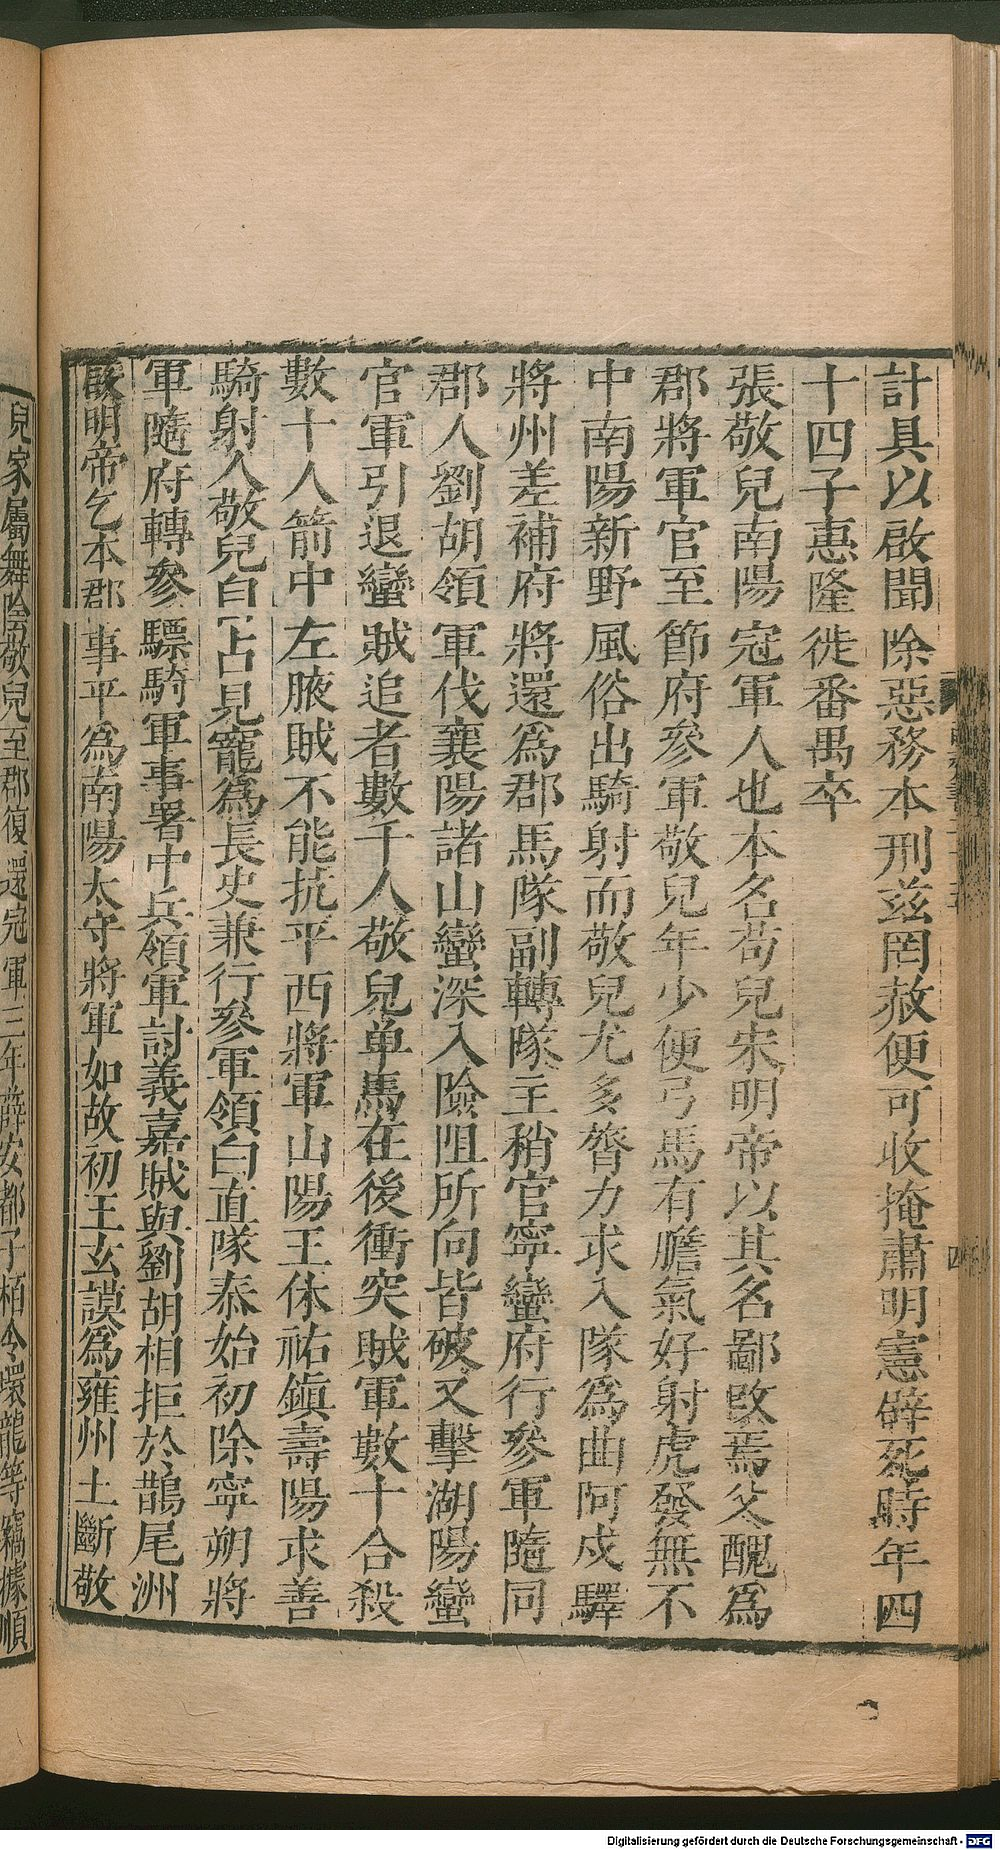 計具以啟聞除惡務本刑兹罔赦便可收掩肅明憲辟死時年四
十四子惠隆徙番禺卒
張敬兒南陽冠軍人也本名苟兒宋明帝以其名鄙改焉父醜爲
郡將軍官至節府參軍敬兒年少便弓馬有膽氣好射虎發無不
中南陽新野風俗出騎射而敬兒尤多膂力求入隊爲曲阿戍驛
將州差補府將還爲郡馬隊副轉隊主稍官寧蠻府行參軍隨同
郡人劉胡領軍伐襄陽諸山蠻深入險阻所向皆破又擊湖陽蠻
官軍引退蠻賊追者數千人敬兒单馬在後衝突賊軍數十合殺
數十人箭中左腋賊不能抗平西將軍山陽王休祐鎮壽陽求善
騎射人敬兒自占見寵爲長史兼行參軍領白直隊泰始初除寧朔將
軍隨府轉參驃騎軍事署中兵領軍討義嘉賊與劉胡相拒於鵲尾洲
啟明帝乞本郡事平爲南陽太守將軍如故初王玄謨爲雍州土斷敬
兒家屬舞陰敬兒至郡復還冠軍三年薛安都子栢令環龍等竊據順
四
Digitalisierung gefördert durch die Deutsche Forschungsgemeinschaft - DFG